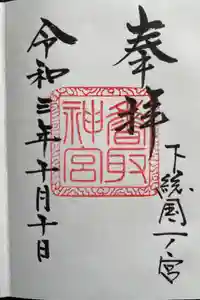 奉拝
下総国一ノ宮
香取神宮
令和三年十月十日